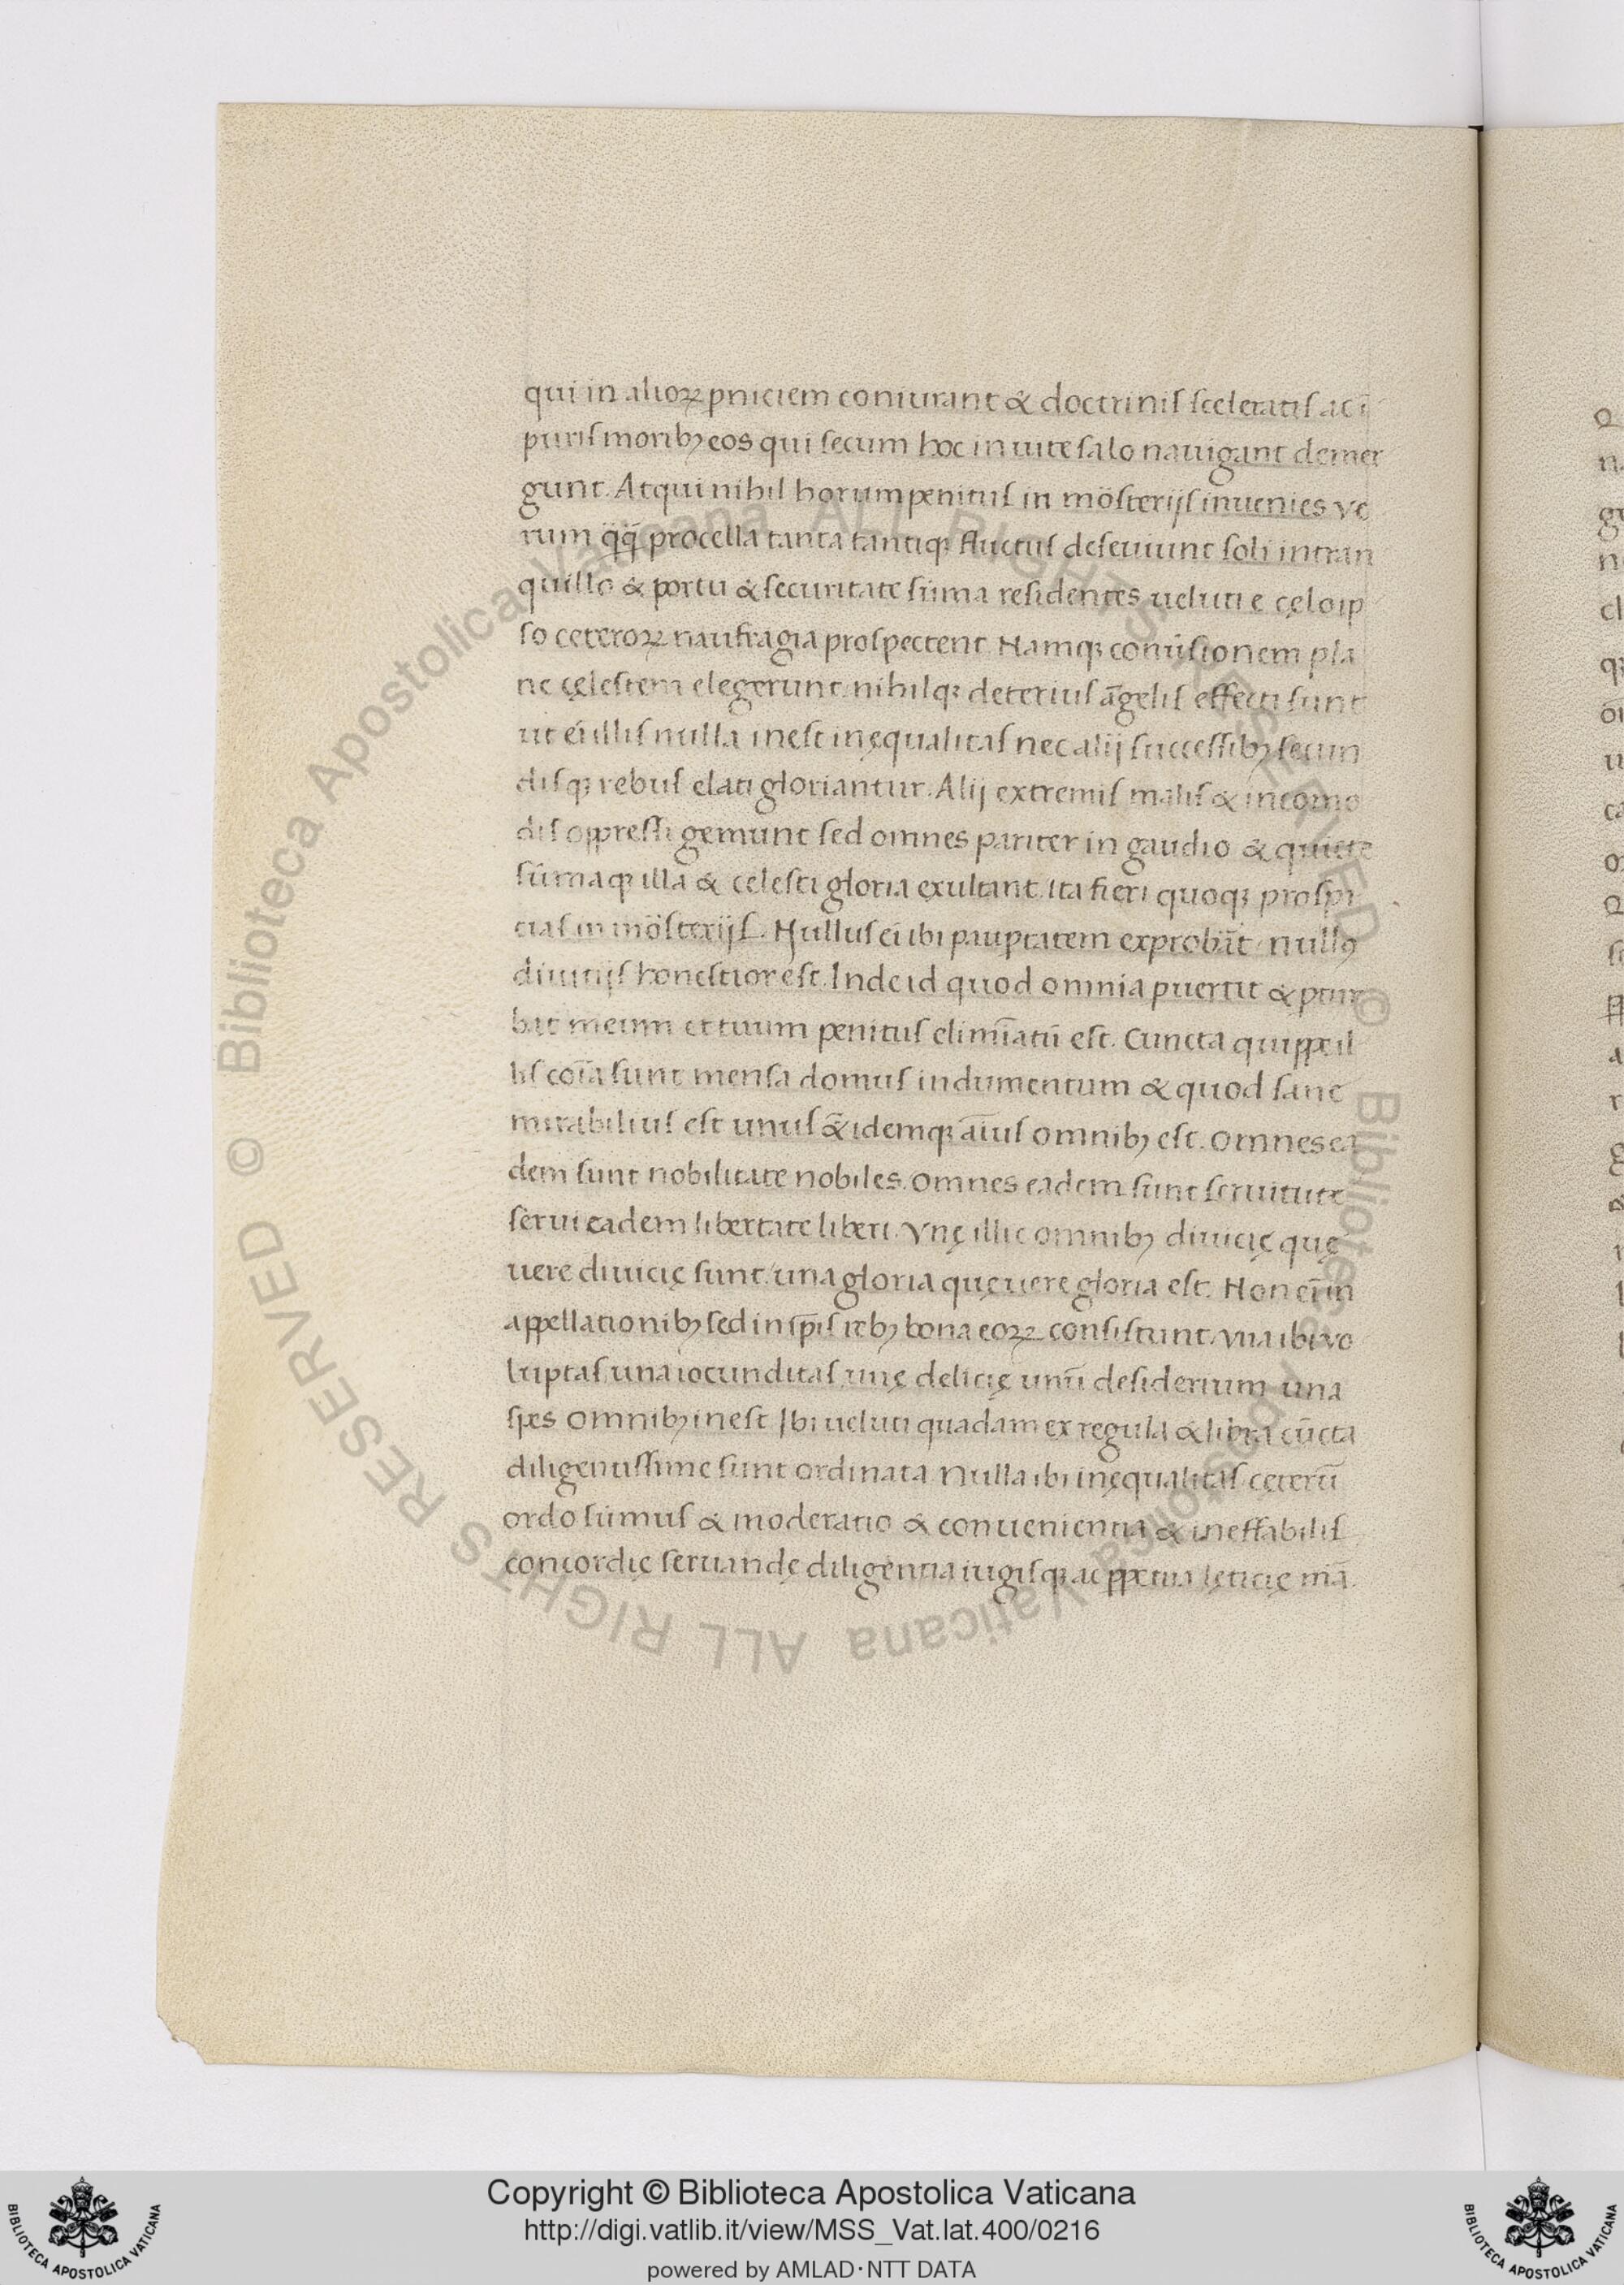 qui in alioꝝ ꝑniciem coniurant & doctrinis sceleratis ac ī
puris moribꝫ eos qui secum hoc in uite salo nauigant demer
gunt. Atqui nihil horum penitus in mōsterijs inuenies ve
rum q̄q̄ procella tanta tantiqꝫ fluctus deseuiunt soli in tran
quillo & portu & securitate sūma residentes ueluti e cęlo ip
so ceteroꝝ naufragia prospectent. Namqꝫ conūsionem pla
ne cęlestem elegerunt. nihilqꝫ deterius āgelis effecti sunt
ut ei illis nulla inest inęqualitas nec alij successibꝫ secun
disqꝫ rebus elati gloriantur. Alij extremis malis & incomo
dis oppressi gemunt sed omnes pariter in gaudio & quiete
sūmaqꝫ illa & celesti gloria exultant. Ita fieri quoqꝫ prospi
cias in mōsterijs. Nullus ei ibi pauꝑtatem exprobāt nullꝰ
diuitijs honestior est. Inde id quod omnia ꝑuertit & ꝑtur
bat meum et tuum penitus elimīatū est. Cuncta quippe il
lis coīa sunt mensa domus indumentum & quod sane
mirabilius est unus & idemqꝫ aīus omnibꝫ est. Omnes ea
dem sunt nobilitate nobiles. Omnes eadem sunt seruitute
serui eadem libertate liberi. Vnę illic omnibꝫ diuicię quę
uere diuicię sunt. una gloria quę uere gloria est. Non eī in
appellationibꝫ sed in ip̄is rebꝫ bona eoꝝ consistunt. vna ibi vo
luptas, una iocunditas, unę delicię unū desiderium una
spes omnibꝫ inest. Ibi ueluti quadam ex regula & libra cūcta
diligentissime sunt ordinata. Nulla ibi inęqualitas ceterū
ordo sūmus & moderatio & conuenientia & ineffabilis
concordię seruandę diligentia iugisqꝫ ac ꝑpetua lęticię mā
Copyright © Biblioteca Apostolica Vaticana
http://digi.vatlib.it/view/MSS_Vat.lat.400/0216
powered by AMLAD·NTT DATA